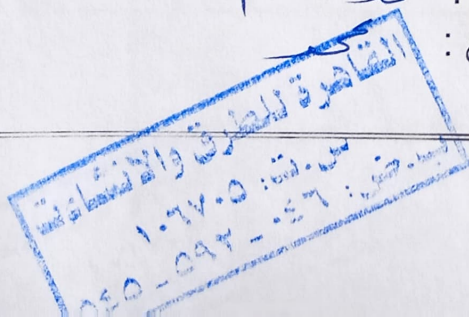 القاهرة للطرق والانشاءات
س.ت: ١٠٦٧٠٥
ب.ض: ٠٤٦ - ٥٩٢ - ٥٤٥